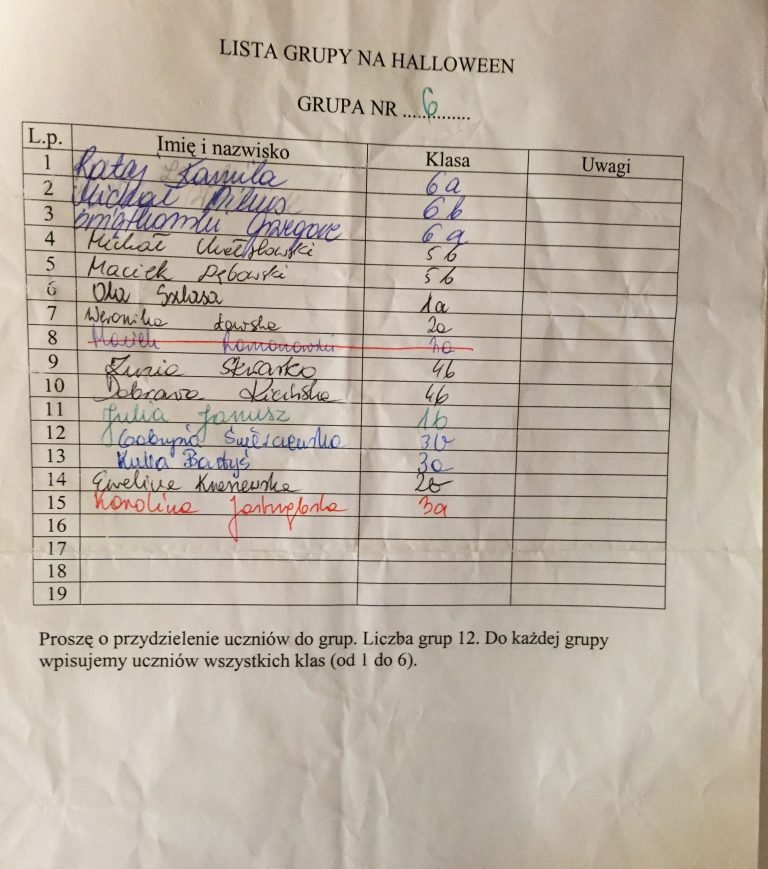 LISTA GRUPY NA HALLOWEEN
GRUPA NR ....6..........
L.p. Imię i nazwisko Klasa Uwagi
1 Rataj Kamila 6a
2 Michał Mikus 6b
3 Grzegorz 6a
4 Michał 5b
5 Maciek Dębowski 5b
6 Ola Szlasa 1a
7 Weronika Ławska 2a
8 Maciek Romanowski 3a
9 Zuzia 4b
10 Dobrawa Kicińska 4b
11 Julia Janusz 1b
12 Gabrysia 3b
13 Kuba Bartyś 3a
14 Ewelina 2b
15 Karolina Jastrzębska 3a
16
17
18
19
Proszę o przydzielenie uczniów do grup. Liczba grup 12. Do każdej grupy
wpisujemy uczniów wszystkich klas (od 1 do 6).